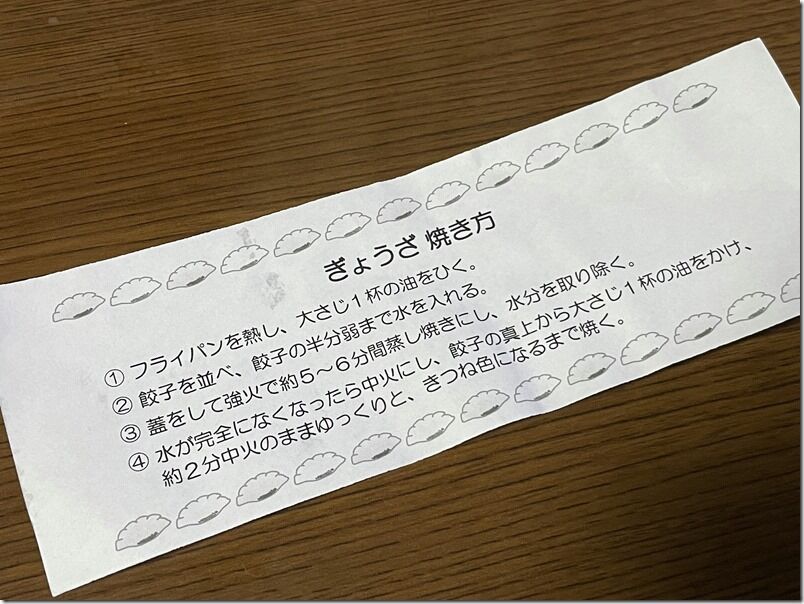 ぎょうざ 焼き方
① フライパンを熱し、大さじ1杯の油をひく。
② 餃子を並べ、餃子の半分弱まで水を入れる。
③ 蓋をして強火で約5～6分間蒸し焼きにし、水分を取り除く。
④ 水が完全になくなったら中火にし、餃子の真上から大さじ1杯の油をかけ、
約2分中火のままゆっくりと、きつね色になるまで焼く。